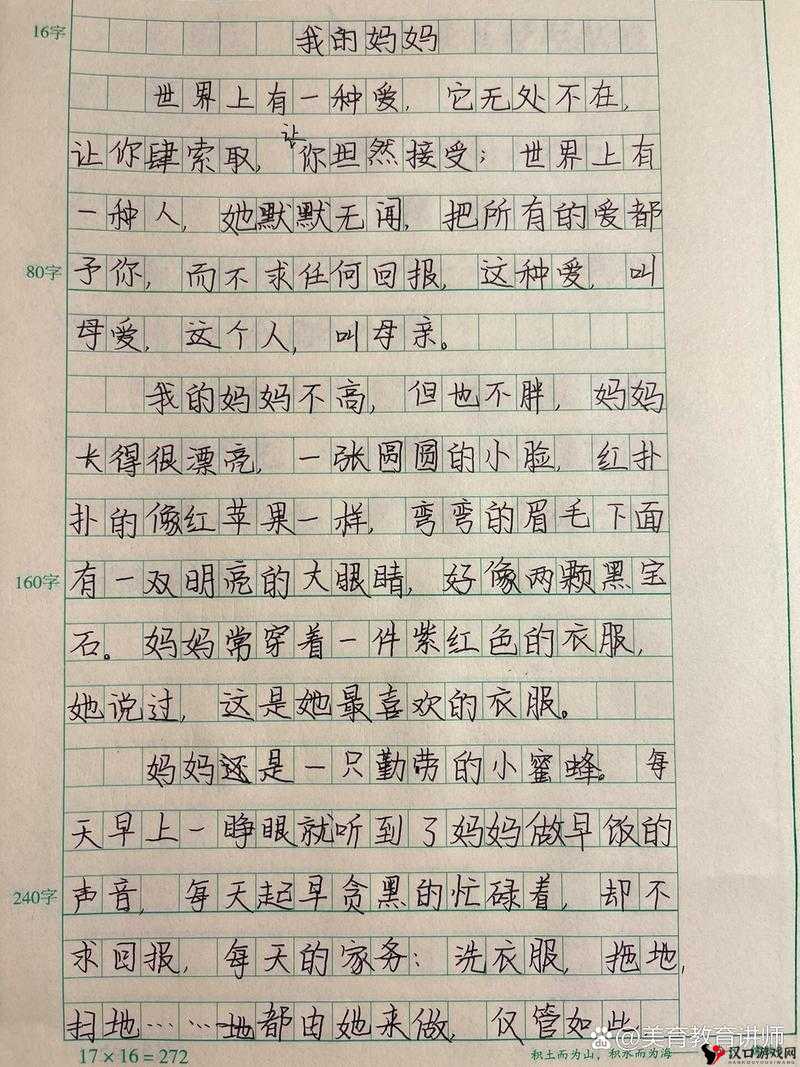 16字
我的妈妈
世界上有一种爱，它无处不在，
让你肆索取，让你坦然接受；世界上有
一种人，她默默无闻，把所有的爱都
80字 予你，而不求任何回报，这种爱，叫
母爱，这个人，叫母亲。
我的妈妈不高，但也不胖，妈妈
长得很漂亮，一张圆圆的小脸，红扑
扑的像红苹果一样，弯弯的眉毛下面
160字 有一双明亮的大眼睛，好像两颗黑宝
石。妈妈常穿着一件紫红色的衣服，
她说过，这是她最喜欢的衣服。
妈妈还是一只勤劳的小蜜蜂。每
天早上一睁眼就听到了妈妈做早饭的
240字 声音，每天起早贪黑的忙碌着，却不
求回报，每天的家务：洗衣服，拖地，
扫地……都由她来做，仅管如此，
17×16=272
积土而为山，积水而为海
美育教育讲师
汉口游戏网
HANKOUYOUXIWANG